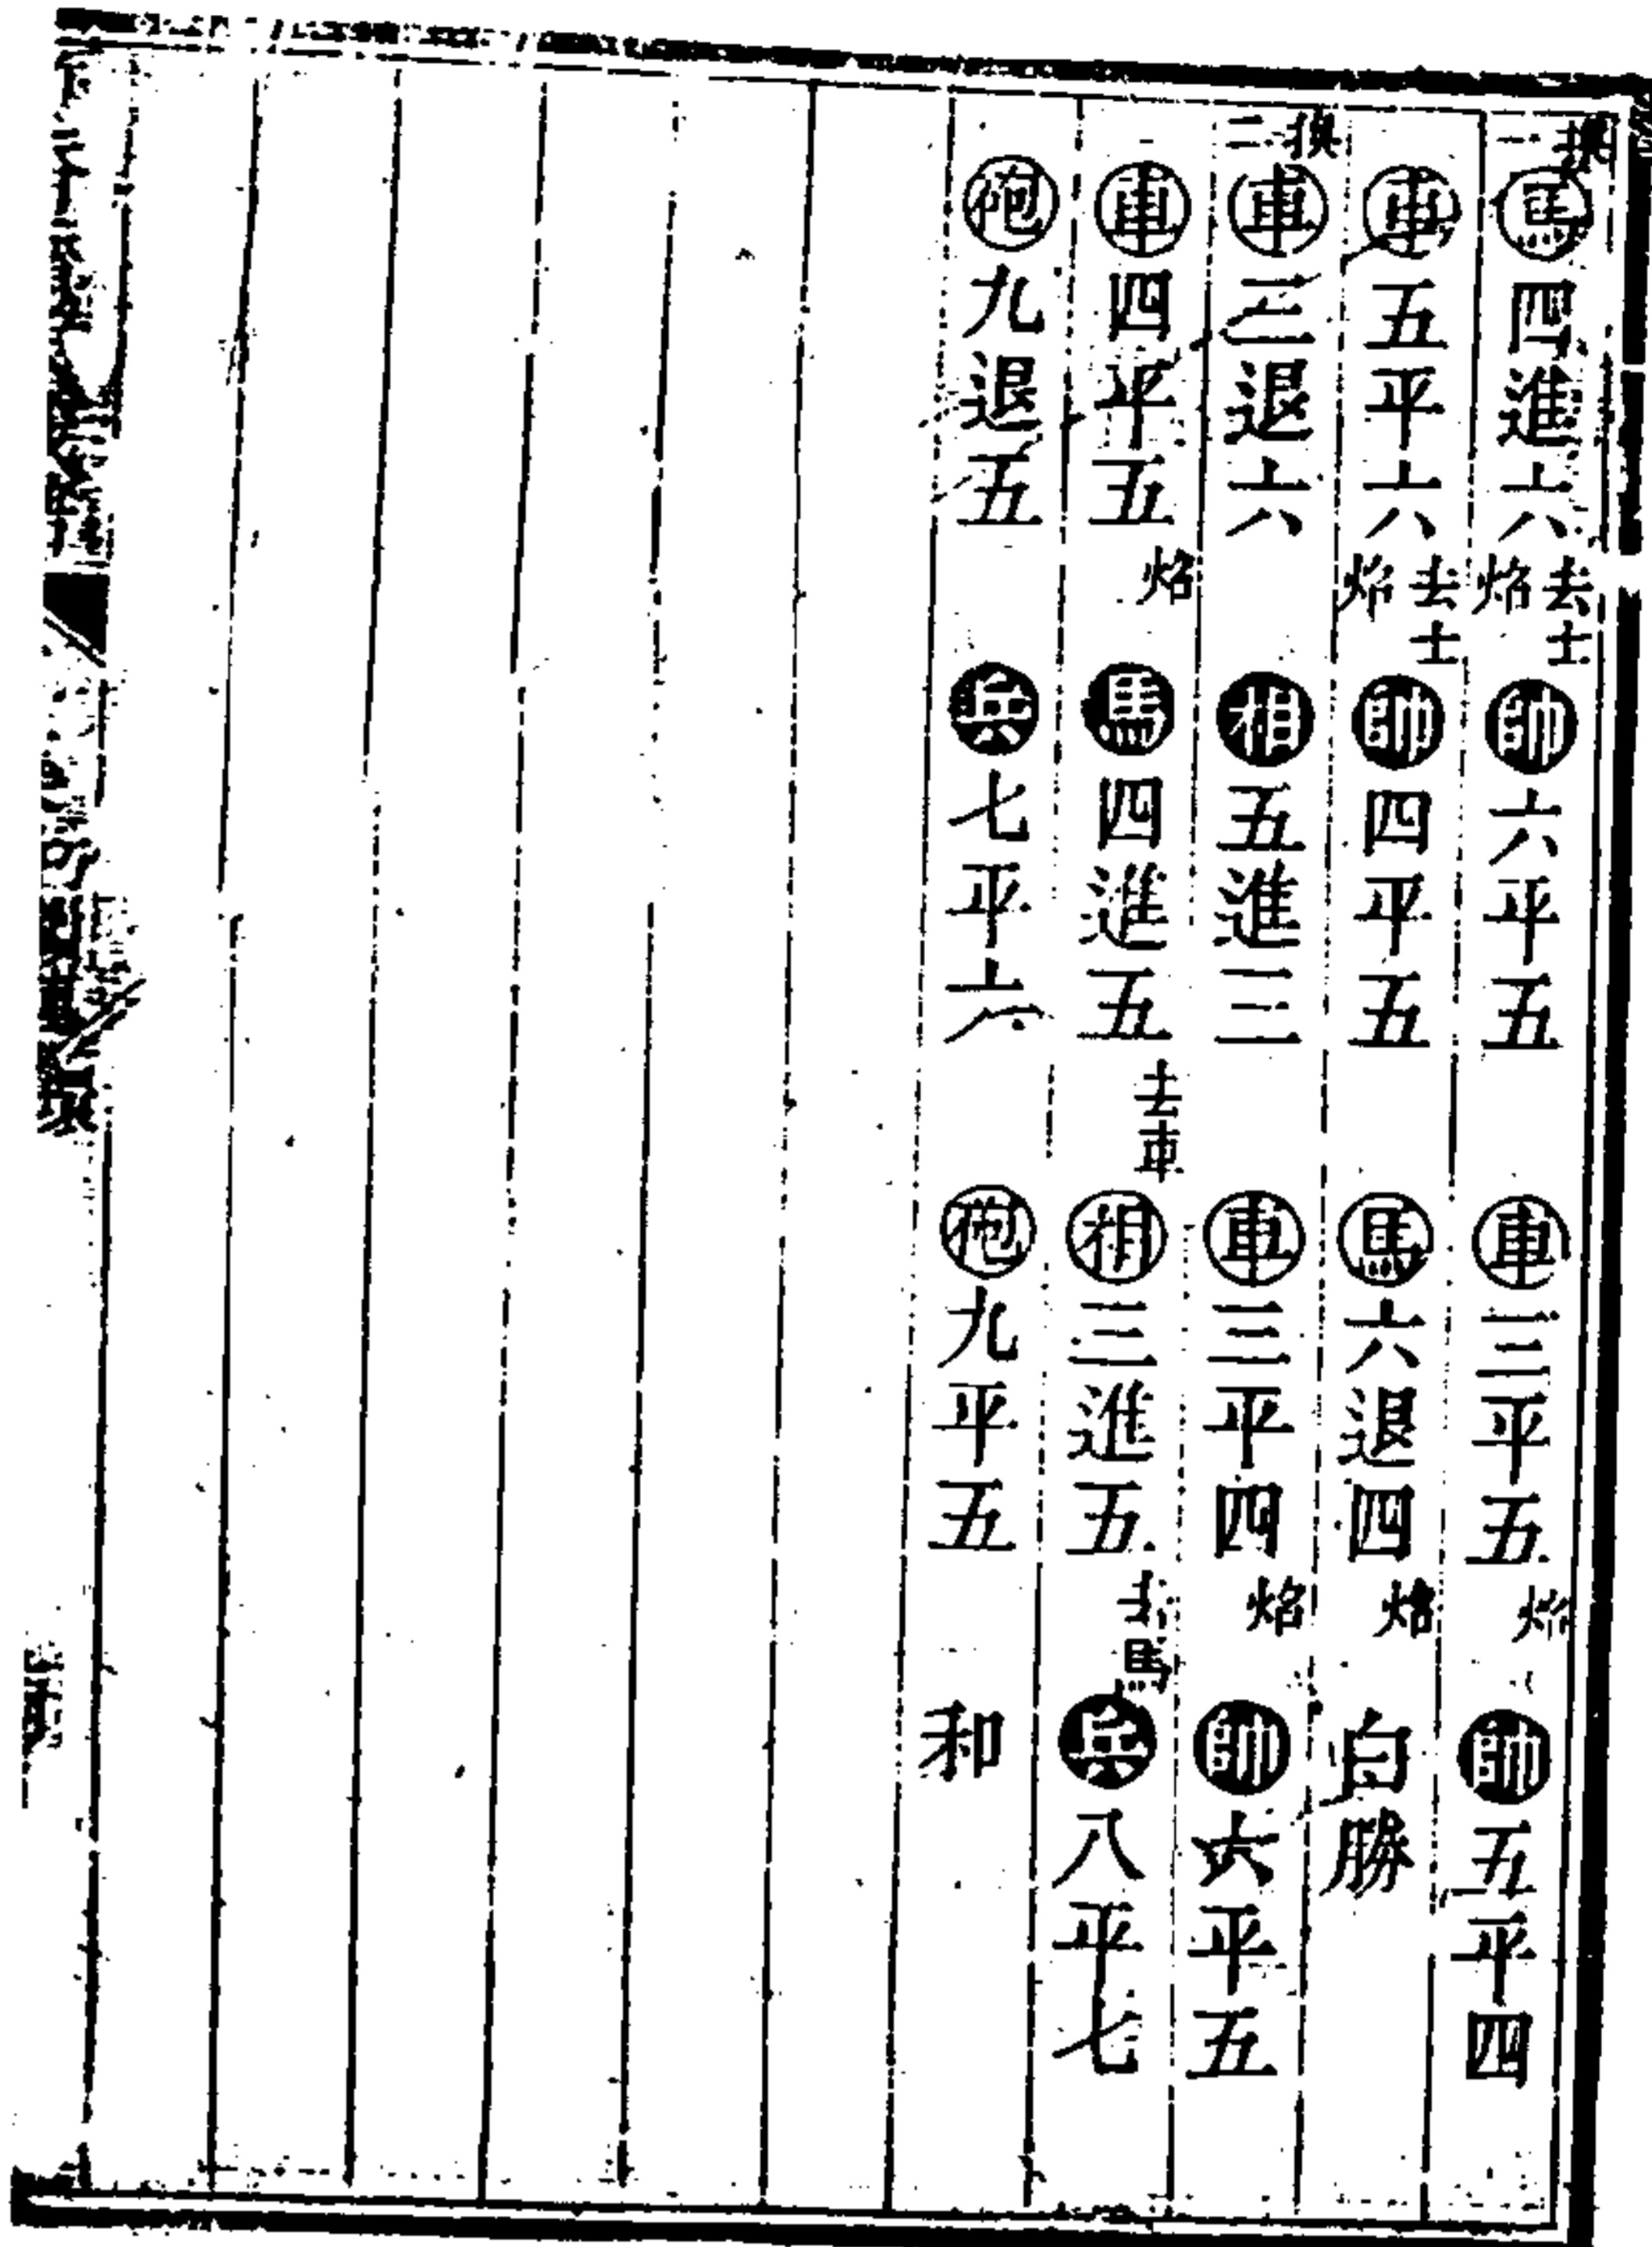 換一 馬四進六 去士炤 帥六平五 車三平五 炤 帥五平四
車五平六 去士炤 帥四平五 馬六退四 炤 白勝
換二 車三退六 相五進三 車三平四 炤 帥六平五
車四平五 炤 馬四進五 去車 相三進五 去馬 兵八平七
砲九退五 兵七平六 砲九平五 和